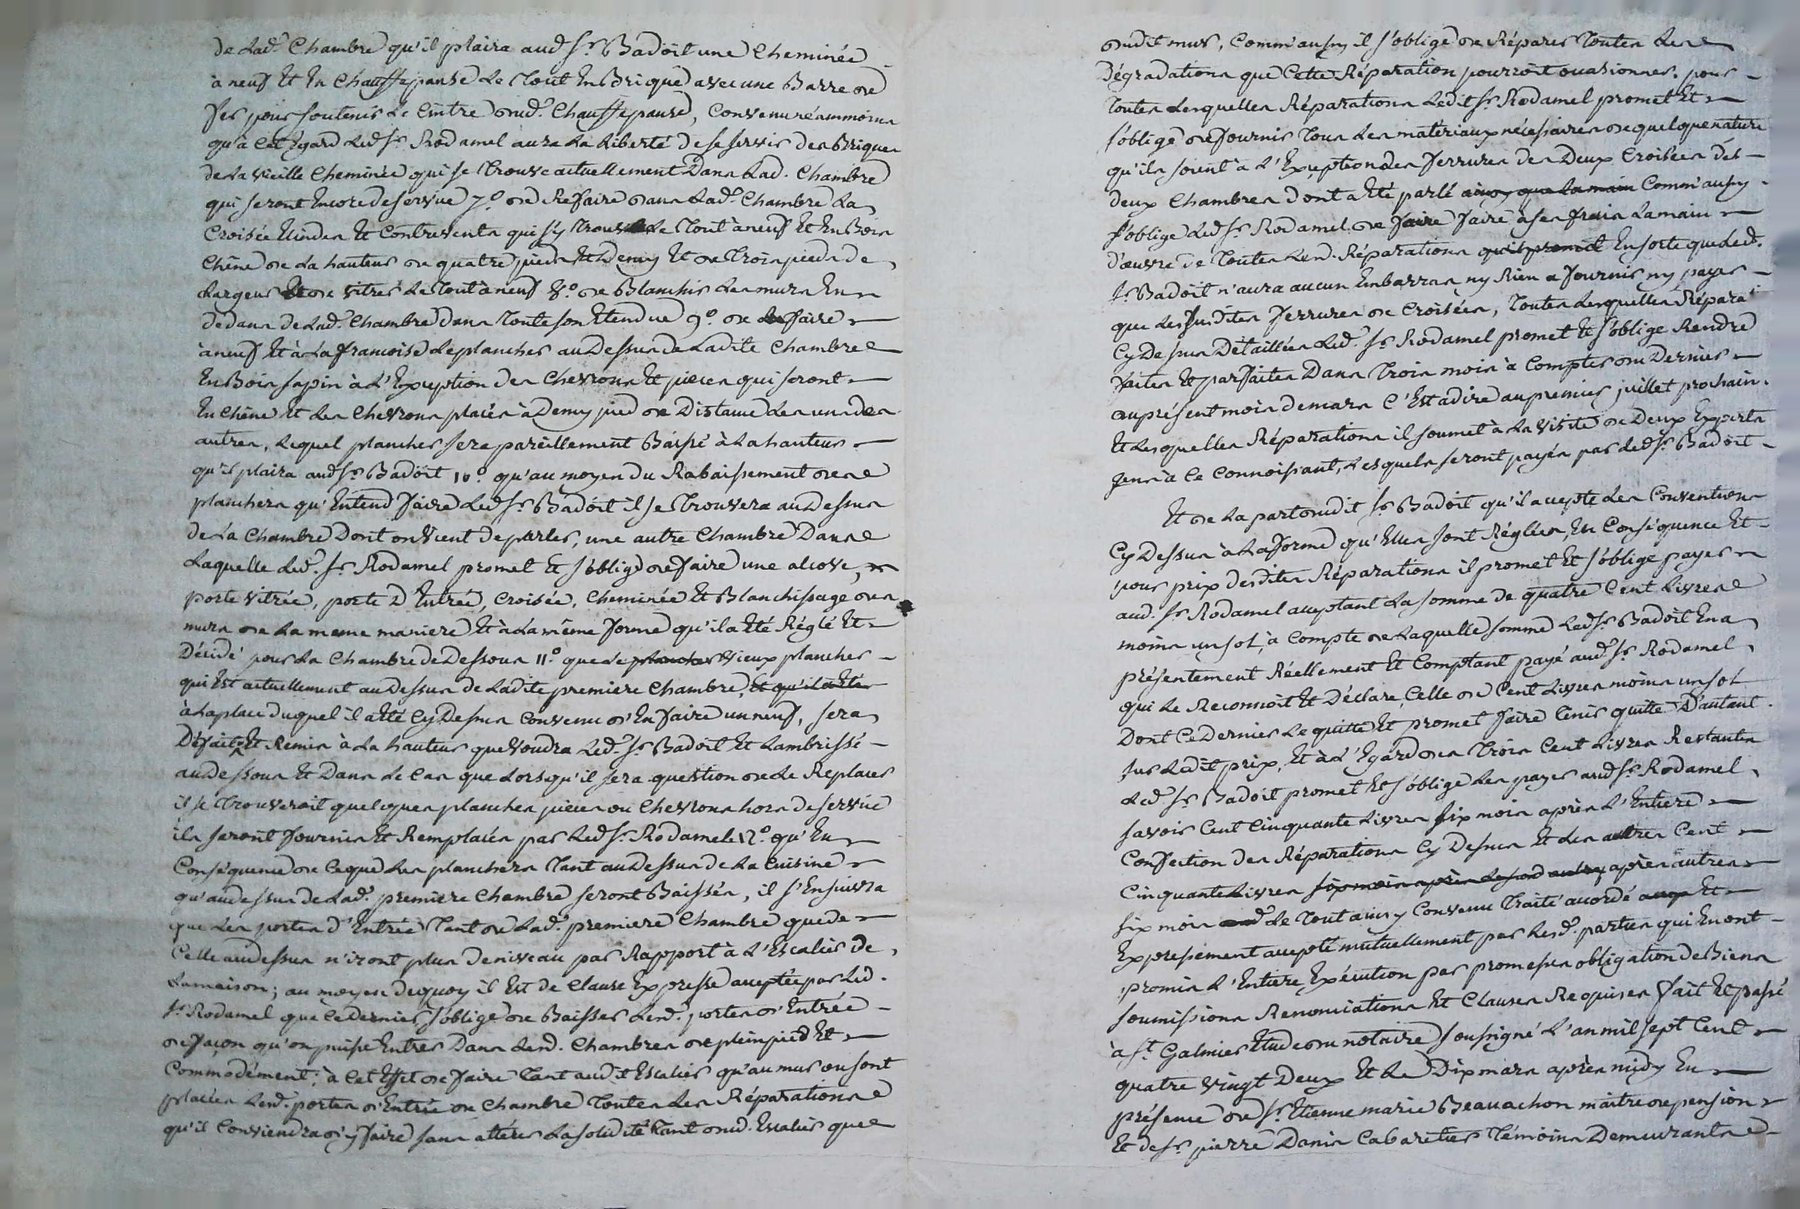 de lad.e Chambre qu'il plaira aud. Sr. Badoit une Cheminée
à neuf Et En Chauffepanse Le Tout En Brique avec une Barre de
fer pour soutenir Le Cintre dud. Chauffepanse, Convenu néammoins
qu'à Cet Egard Led. Sr. Rodamel aura La Liberté de se servir des Briques
de la vieille Cheminée qui se Trouve actuellement Dans Lad. Chambre
qui seront Encore de servue 7.o de Refaire dans Lad.e Chambre La
Croisée Et Contrevents qui s'y Trouve Le Tout à neuf Et En Bois
Chêne de La hauteur de quatre pieds Et Demy Et de Trois pieds de
Largeur Et de vitrer Le Tout à neuf 8.o de Blanchir Les murs En
dedans de Lad.e Chambre dans Toute son Etendue 9.o de faire
à neuf Et à La francoise Le plancher au Dessus de Ladite Chambre
En Bois sapin à L'Exception des Chevrons Et pieces qui seront
En Chêne Et Les Chevrons placés à Demy pied de Distance Les uns des
autres, Lequel plancher sera pareillement Baissé à La hauteur
qu'il plaira aud. Sr. Badoit 10.o qu'au moyen du Rabaissement des
planchers qu'Entend faire Led. Sr. Badoit il se Trouvera au Dessus
de La Chambre Dont on vient de parler, une autre Chambre Dans
Laquelle Led. Sr. Rodamel promet Et s'oblige de faire une alcove,
porte vitrée, porte D'Entrée, Croisée, Cheminée Et Blanchissage des
murs de La meme maniere Et à La même forme qu'il a Eté Réglé Et
Décidé pour La Chambre de Dessous 11.o que Le plancher vieux plancher
qui Est actuellement au Dessus de Ladite premiere Chambre, Et qu'il a Eté
à La place duquel il a Eté Cy Dessus Convenu d'En faire un neuf, sera
Défait Et Remis à La hauteur que voudra Led. Sr. Badoit Et Lambrissé
au Dessous Et Dans Le Cas que Lorsqu'il sera question de Le Replacer
il se Trouveroit quelques planches pieces ou Chevrons hors de servue
ils seront fournis Et Remplacés par Led. Sr. Rodamel 12.o qu'En
Conséquence de Ce que Les planchers Tant au Dessus de La Cuisine
qu'au dessus de Lad.e premiere Chambre seront Baissés, il s'Ensuivra
que Les portes d'Entrée Tant de Lad.e premiere Chambre que de
Celle au dessus n'iront plus de niveau par Rapport à L'Escalier de
La maison; au moyen de quoy il Est de Clause Expresse acceptée par Led.
Sr. Rodamel que Ce dernier s'oblige de Baisser Lesd. portes d'Entrée
de façon qu'on puisse Entrer Dans Lesd. Chambres de plein pied Et
Commodément; à Cet Effet de faire Tant aud.t Escalier qu'au mur où sont
placées Lesd. portes d'Entrée de Chambre Toutes Les Réparations
qu'il Conviendra d'y faire sans altérer La solidité Tant dud. Escalier que
dudit mur, Comm'aussy il s'oblige de Réparer Toutes Les
dégradations que Cette Réparation pourroit ocasionner. pour
Toutes Lesquelles Réparations Ledit Sr. Rodamel promet Et
s'oblige de fournir Tous Les matériaux nécessaires de quelque nature
qu'ils soient à L'Exception des ferrures des Deux Croisées des
deux Chambres dont a Eté parlé ainsy que La main Comm'aussy
s'oblige Led. Sr. Rodamel de faire faire à ses frais La main
d'œuvre de Toutes Lesd. Réparations qu'il promet En sorte que Led.
Sr. Badoit n'aura aucun Embarras ny Rien a fournir ny payer
que Les susdites ferrures de Croisées, Toutes Lesquelles Répara.
Cy Dessus Détaillées Led. Sr. Rodamel promet Et s'oblige Rendre
faites Et parfaites Dans Trois mois à Compter du Dernier
du présent mois de mars C'Est à dire au premier juillet prochain.
Et Lesquelles Réparations il soumet à La visite de Deux Experts
gens à Ce Connoissant, Lesquels seront payés par Led. Sr. Badoit
Et de La part dudit Sr. Badoit qu'il accepte Les Conventions
Cy Dessus à La forme qu'Elles sont Réglées, En Conséquence Et
pour prix desdites Réparations il promet Et s'oblige payer
aud. Sr. Rodamel acceptant La somme de quatre Cent Livres
moins un sol, à Compte de Laquelle somme Led. Sr. Badoit En a
présentement Réellement Et Comptant payé aud. Sr. Rodamel
qui Le Reconnoit Et Déclare, Celle de Cent Livres moins un sol
Dont Ce Dernier Le quitte Et promet faire Tenir quitte D'autant
sur Ledit prix, Et à L'Egard des Trois Cent Livres Restantes
Led. Sr. Badoit promet Et s'oblige Les payer aud. Sr. Rodamel
savoir Cent Cinquante Livres six mois après L'Entiere
Confection des Réparations Cy Dessus Et Les autres Cent
Cinquante Livres six mois après Lesd. autres après autres
six mois Le Tout ainsy Convenu Traité accordé Et
Expressement accepté mutuellement par Lesd. parties qui En ont
promis L'Entiere Exécution par promesses obligation de Biens
soumissions Renonciations Et Clauses Requises fait Et passé
à St. Galmier Etude du notaire soussigné L'an mil sept Cent
quatre vingt Deux Et Le Dix mars après midy En
présence de Sr. Etienne marie Beauachon maitre de pension
Et de Sr. pierre Danis Cabaretier Témoins Demeurants